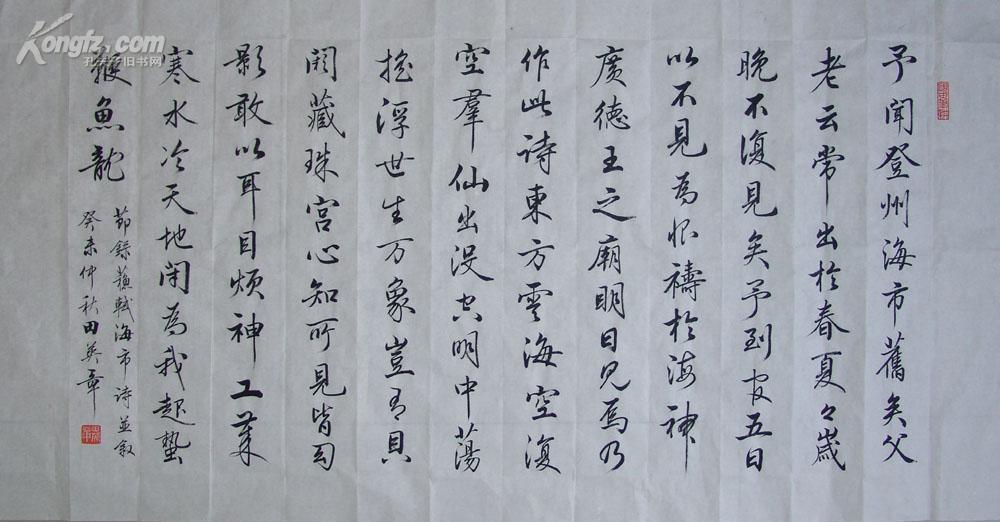 予聞登州海市舊矣父
老云常出於春夏々歲
晚不復見矣予到官五日
以不見為恨禱於海神
廣德王之廟明日見焉乃
作此詩東方雲海空復
空羣仙出没空明中蕩
搖浮世生万象豈有貝
闕藏珠宮心知所見皆幻
影敢以耳目煩神工歲
寒水冷天地閉為我起蟄
鞭魚龍
節錄蘇軾海市诗並叙
癸未仲秋田英章
Kongfz.com
孔夫子旧书网